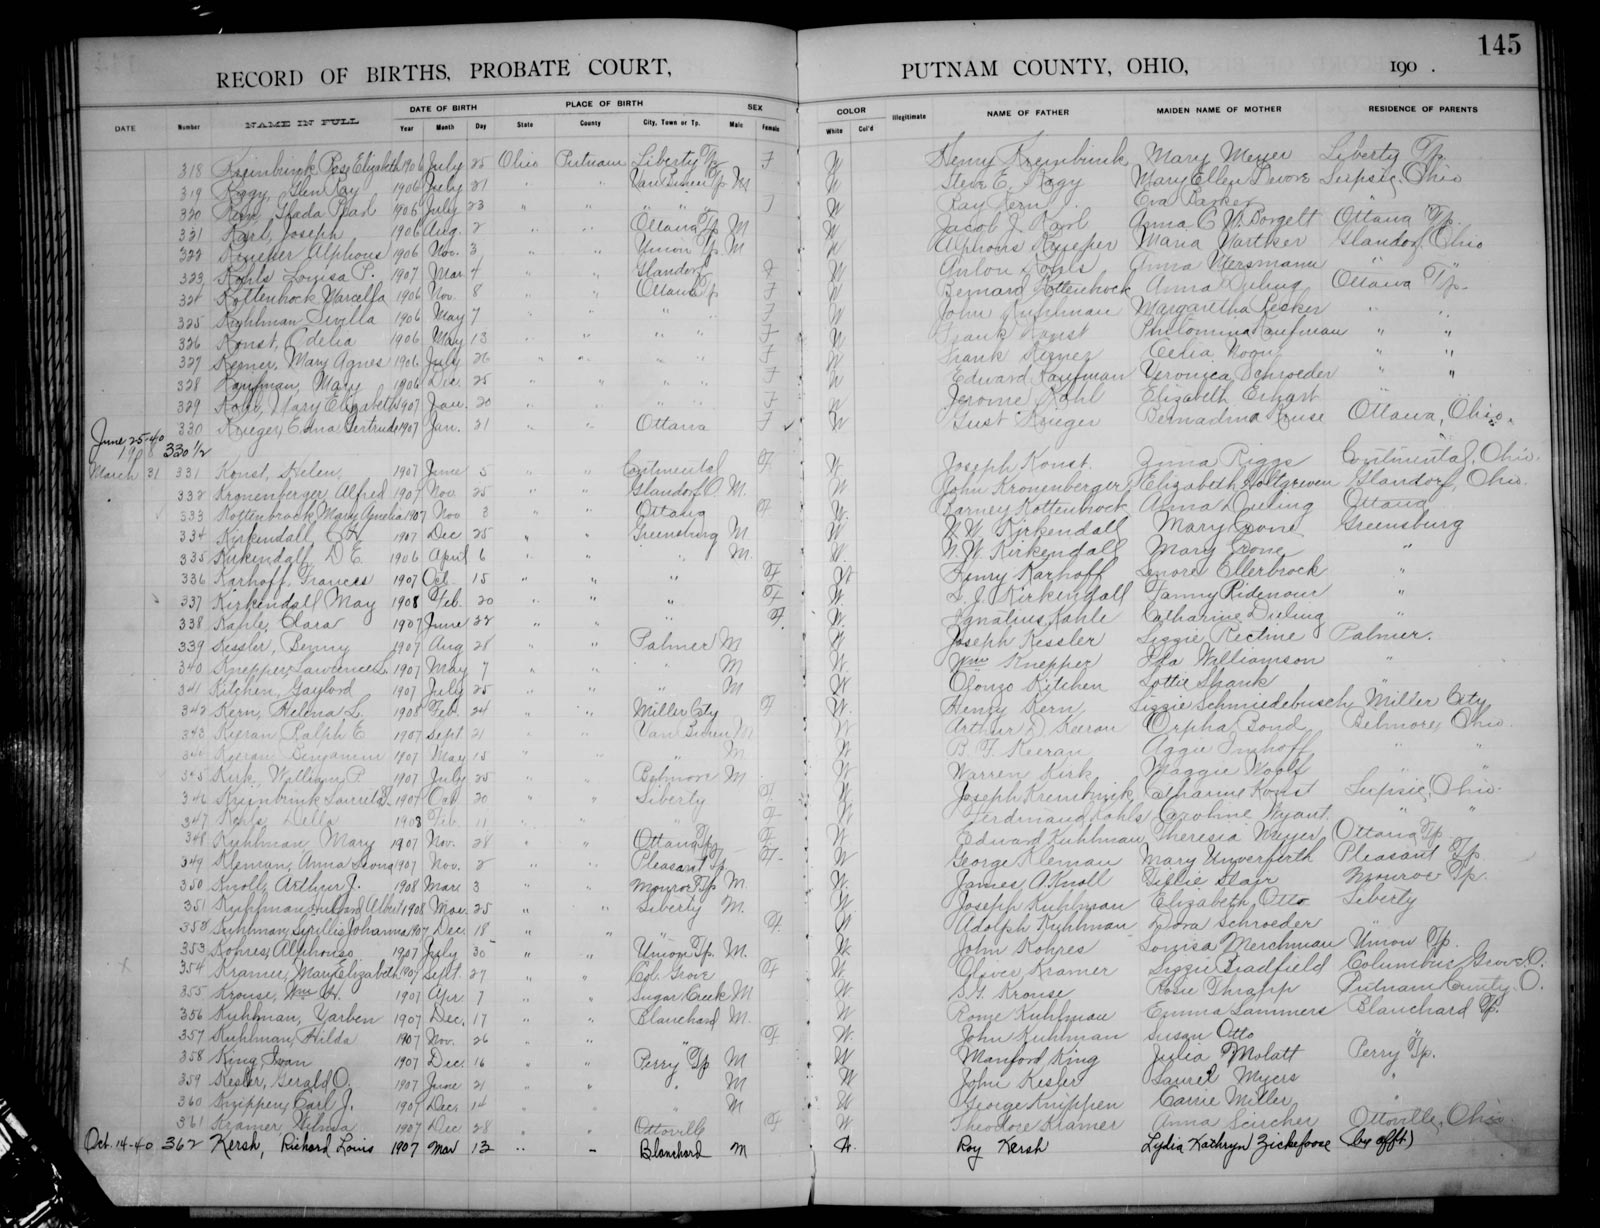 145
RECORD OF BIRTHS, PROBATE COURT, PUTNAM COUNTY, OHIO, 190 .
DATE Number NAME IN FULL DATE OF BIRTH Year Month Day PLACE OF BIRTH State County City, Town or Tp. SEX Male Female COLOR White Col'd Illegitimate NAME OF FATHER MAIDEN NAME OF MOTHER RESIDENCE OF PARENTS
318 Kreinbrink, Rosy Elizabeth 1906 July 25 Ohio Putnam Liberty Tp F W Henry Kreinbrink Mary Meyer Liberty Tp.
319 Kagy, Glen Ray 1906 July 21 " " Van Buren Tp M W Steve E. Kagy Mary Ellen Devore Leipsic, Ohio
320 Kern, Glada Pearl 1906 July 23 " " " " F W Ray Kern Eva Barker "
321 Karl, Joseph 1906 Aug. 2 " " Ottawa Tp M W Jacob J. Karl Anna C. W. Borgelt Ottawa Tp.
322 Alphons 1906 Nov. 3 " " Union Tp M W Alphons Maria Glandorf Ohio
323 Kohls Louisa P. 1907 Mar 4 " " Glandorf F W Anton Kohls Anna Mersmann "
324 Kottenbrock Marcella 1906 Nov. 8 " " Ottawa Tp F W Bernard Kottenbrock Anna Dieling Ottawa Tp.
325 Kuhlman Sivilla 1906 May 7 " " " " F W John Kuhlman Margaretha Recker " "
326 Konst, Odelia 1906 May 13 " " " " F W Frank Konst Philomina Kaufman " "
327 Mary Agnes 1906 July 26 " " " " F W Frank Celia " "
328 Kaufman, Mary 1906 Dec. 25 " " " " F W Edward Kaufman Veronica Schroeder " "
329 Kohl, Mary Elizabeth 1907 Jan. 20 " " " " F W Jerome Kohl Elizabeth Erhart "
330 Krieger, Edna Gertrude 1907 Jan. 21 " " Ottawa F W Gust Krieger Bernadina Kruse Ottawa, Ohio.
June 25-40 330 1/2
1908
March 31 331 Konst, Helen, 1907 June 5 " " Continental F W Joseph Konst. Anna Riggs Continental, Ohio.
332 Kronenberger Alfred 1907 Nov. 25 " " Glandorf O. M. W John Kronenberger Elizabeth Holtgreven Glandorf, Ohio.
333 Kottenbrock, Mary Amelia 1907 Nov 3 " " Ottawa F. W. Barney Kottenbrock Anna Dieling Ottawa
334 Kirkendall, 1907 Dec 25 " " Greensburg M W W. W. Kirkendall Mary Crone Greensburg
335 Kirkendall, D E. 1906 April 6 " " " M. W. W. W. Kirkendall Mary Crone "
336 Karhoff, Frances 1907 Oct. 15 " " " F W Henry Karhoff Lenore Ellerbrock "
337 Kirkendall May 1908 Feb. 20 " " " F. W. L. J. Kirkendall Fanny Ridenour "
338 Kahle, Clara 1907 June 22 " " " F. W. Ignatius Kahle Catharine Dieling "
339 Kessler, Benny 1907 Aug 28 " " Palmer M W Joseph Kessler Lizzie Rectine Palmer.
340 Knepper, Lawrence L. 1907 May 7 " " " M W. Wm Knepper Ida Williamson "
341 Kitchen, Gaylord 1907 July 25 " " " M W Olonzo Kitchen Lottie Shank
342 Kern, Helena L. 1908 Feb. 24 " " Miller City F W. Henry Kern, Lizzie Schmiedebusch Miller City
343 Kieran Ralph E 1907 Sept 21 " " Van Buren M W Arthur D Keeran Orpha Bond Belmore, Ohio.
344 Kieran Benjamin 1907 May 15 " " " M W B. F. Keeran Aggie Imhoff " "
345 Kirk, William P 1907 July 25 " " Belmore M. W Warren Kirk Maggie Woolf "
346 Kreinbrink Loretta 1907 Oct 20 " " Liberty F. W Joseph Kreinbrink Catharine Konst Leipsic, Ohio.
347 Kahls, Della 1908 Feb. 11 " " " F W Ferdinand Kahls Caroline Wyant. " "
348 Kuhlman, Mary 1907 Nov. 28 " " Ottawa Tp. F W Edward Kuhlman Theresia Meyer Ottawa Tp.
349 Kleman, Anna Leona 1907 Nov. 2 " " Pleasant Tp F. W George Kleman Mary Unverferth Pleasant Tp.
350 Knoll, Arthur J. 1908 Mar. 3 " " Monroe Tp M. W. James A Knoll Tillie Stair Monroe Tp.
351 Kuhlman, Albert 1908 Mar. 25 " " Liberty M. W. Joseph Kuhlman Elizabeth Otto Liberty
352 Kuhlman, Johanna 1907 Dec. 18 " " " F. W. Adolph Kuhlman Dora Schroeder "
353 Kohres, Alphonso 1907 July 30 " " Union Tp. M. W. John Kohres Louisa Merchman Union Tp.
354 Kramer, Mary Elizabeth 1907 Sept. 27 " " Col. Grove F W. Oliver Kramer Lizzie Bradfield Columbus Grove O.
355 Krouse, Wm H. 1907 Apr. 7 " " Sugar Creek M W S. G. Krouse Rosie Thrapp Putnam County O.
356 Kuhlman, Yarben 1907 Dec. 17 " " Blanchard M. W Rome Kuhlman Emma Lammers Blanchard Tp.
357 Kuhlman, Hilda 1907 Nov. 26 " " " F. W. John Kuhlman Susan Otto "
358 King, Ivan 1907 Dec. 16 " " Perry Tp M W Manford King Julia Molatt Perry Tp.
359 Kesler, Gerald O. 1907 June 21 " " " M W John Kesler Laurel Myers "
360 Knippen, Carl J. 1907 Dec. 14 " " " M W George Knippen Carrie Miller
361 Kramer 1907 Dec 28 " " Ottoville F W. Theodore Kramer Anna Scircher Ottoville, Ohio
Oct. 14-40 362 Kersh, Richard Louis 1907 Mar 13 " - Blanchard M W. Roy Kersh Lydia Kathryn Zickefoose (by afft)